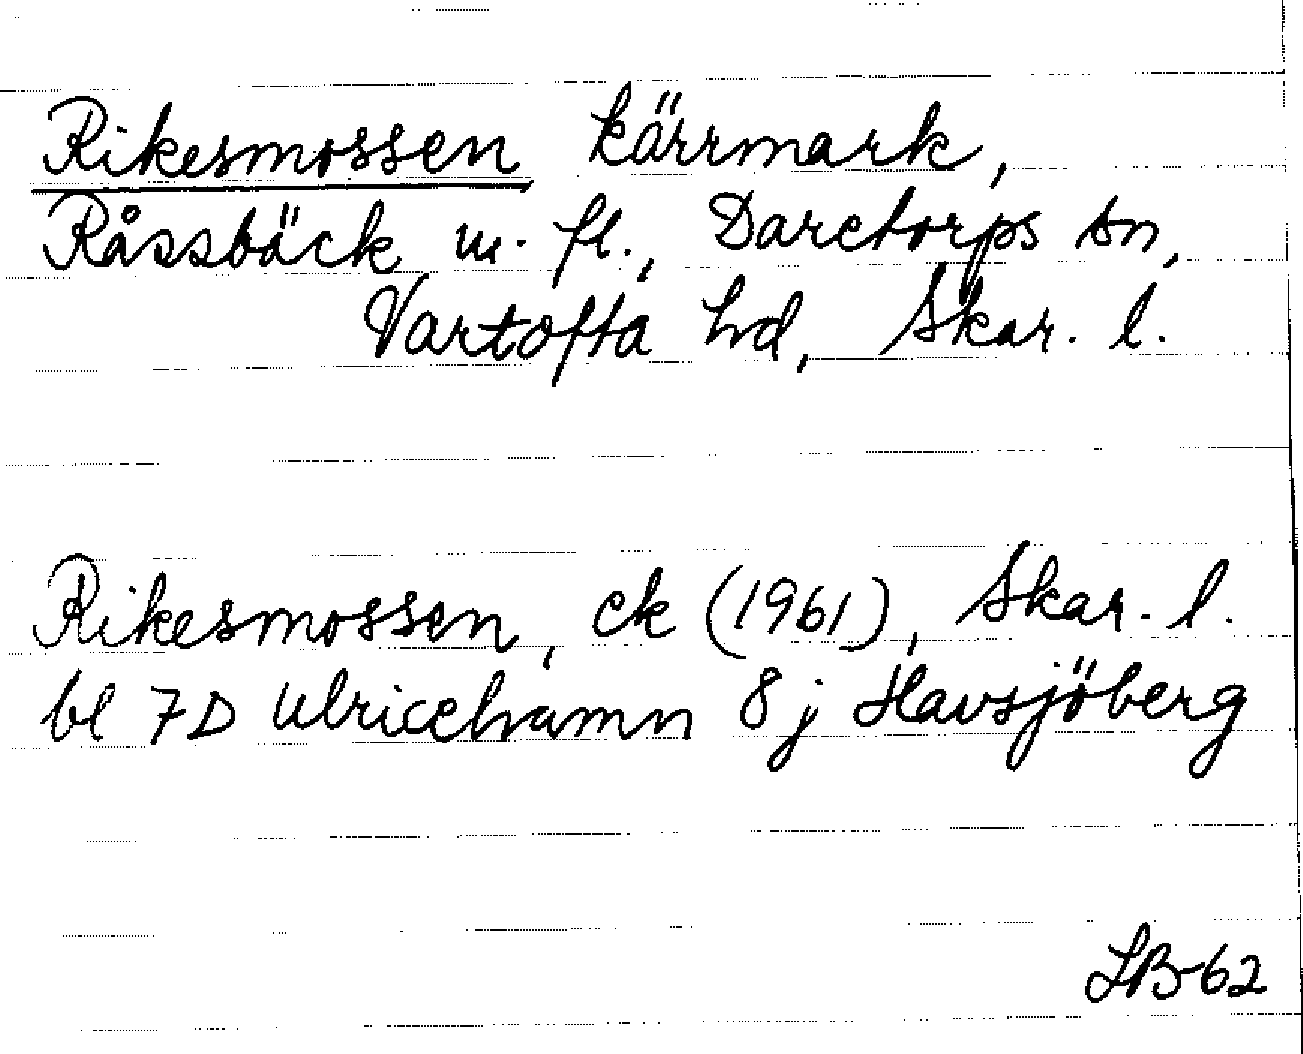 Rikesmossen kärrmark,
Råssbäck m. fl., Daretorps sn,
Vartofta hd, Skar. l.
Rikesmossen, ek (1961), Skar. l.
bl 7D Ulricehamn 8j Havsjöberg
LB-62